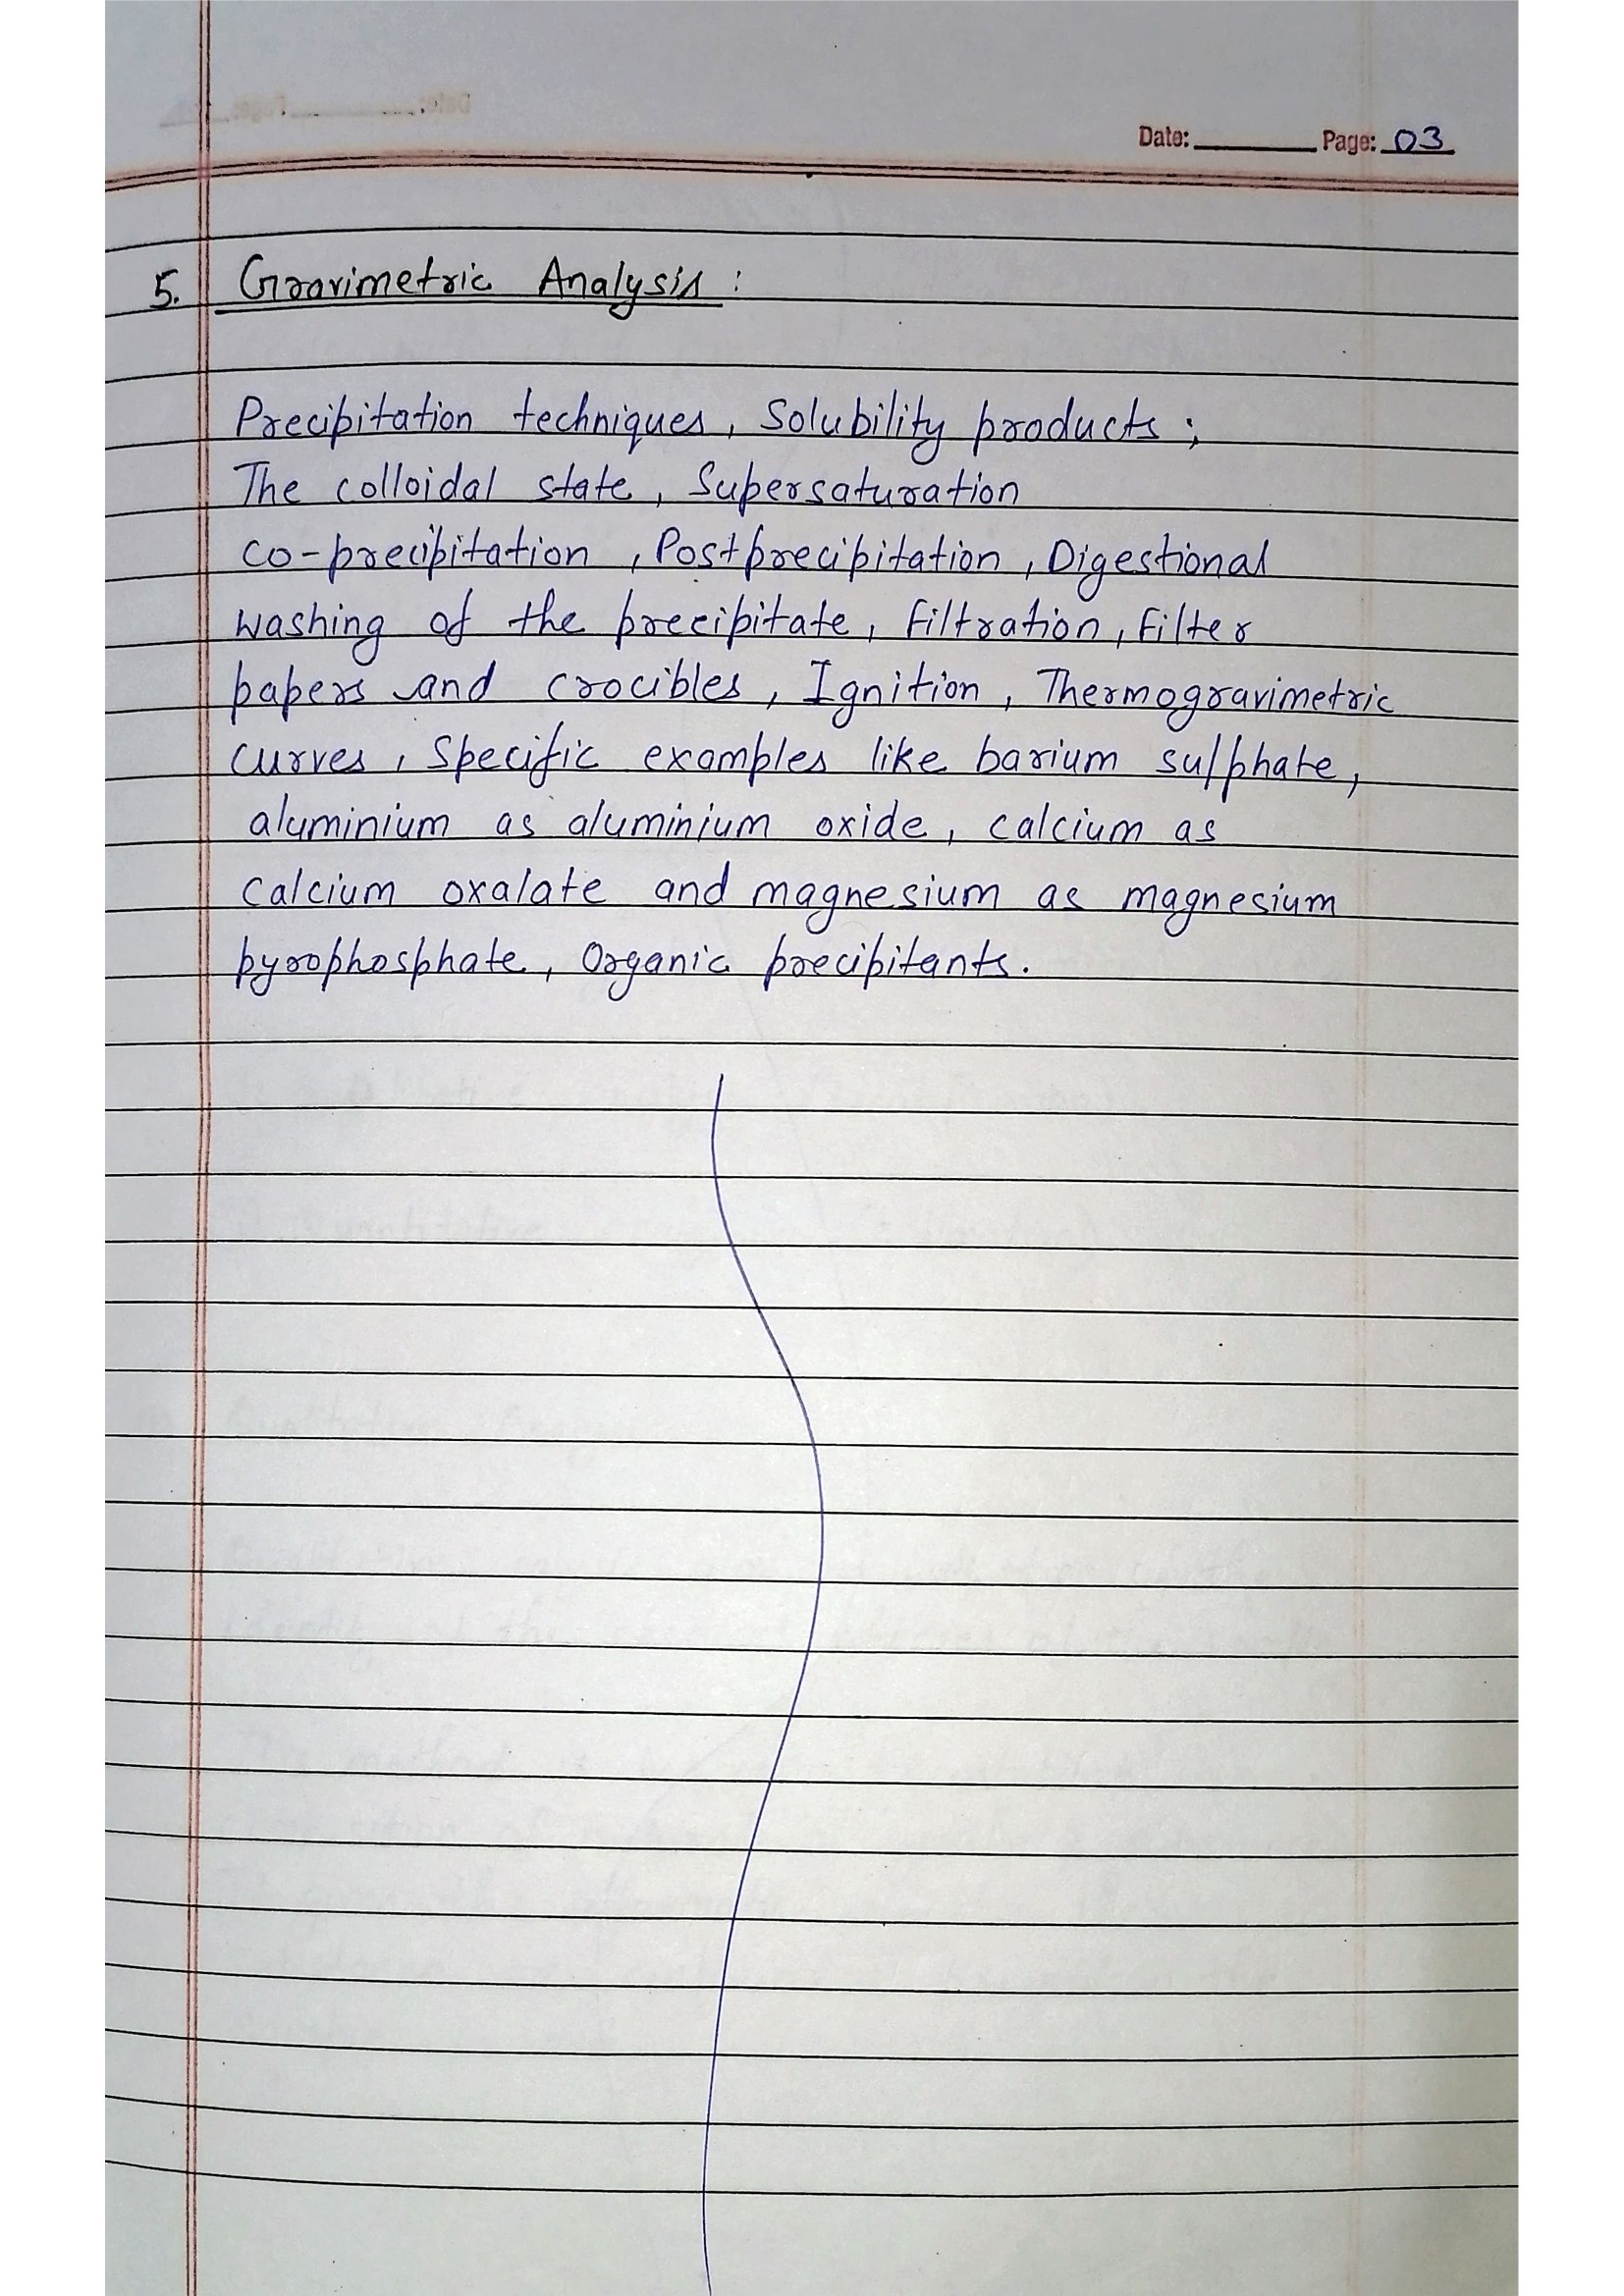 Date: Page: 03
5. Gravimetric Analysis :
Precipitation techniques, Solubility products ;
The colloidal state, Supersaturation
co-precipitation , Postprecipitation , Digestional
washing of the precipitate, filtration, filter
papers and crocibles, Ignition, Thermogravimetric
curves, Specific examples like barium sulphate,
aluminium as aluminium oxide, calcium as
Calcium oxalate and magnesium as magnesium
pyrophosphate, Organic precipitants.